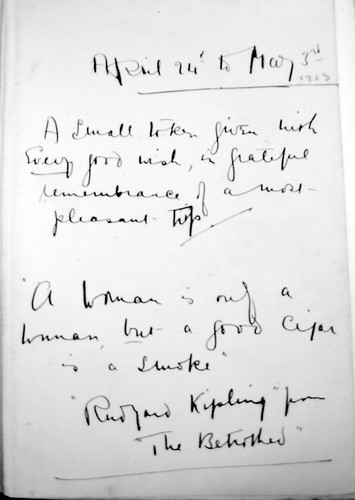 April 24th to May 3rd
1913
A small token given with
Every good wish, in grateful
remembrance of a most
pleasant trip
"A woman is only a
woman, but a good Cigar
is a smoke"
"Rudyard Kipling" from
"The Betrothed"